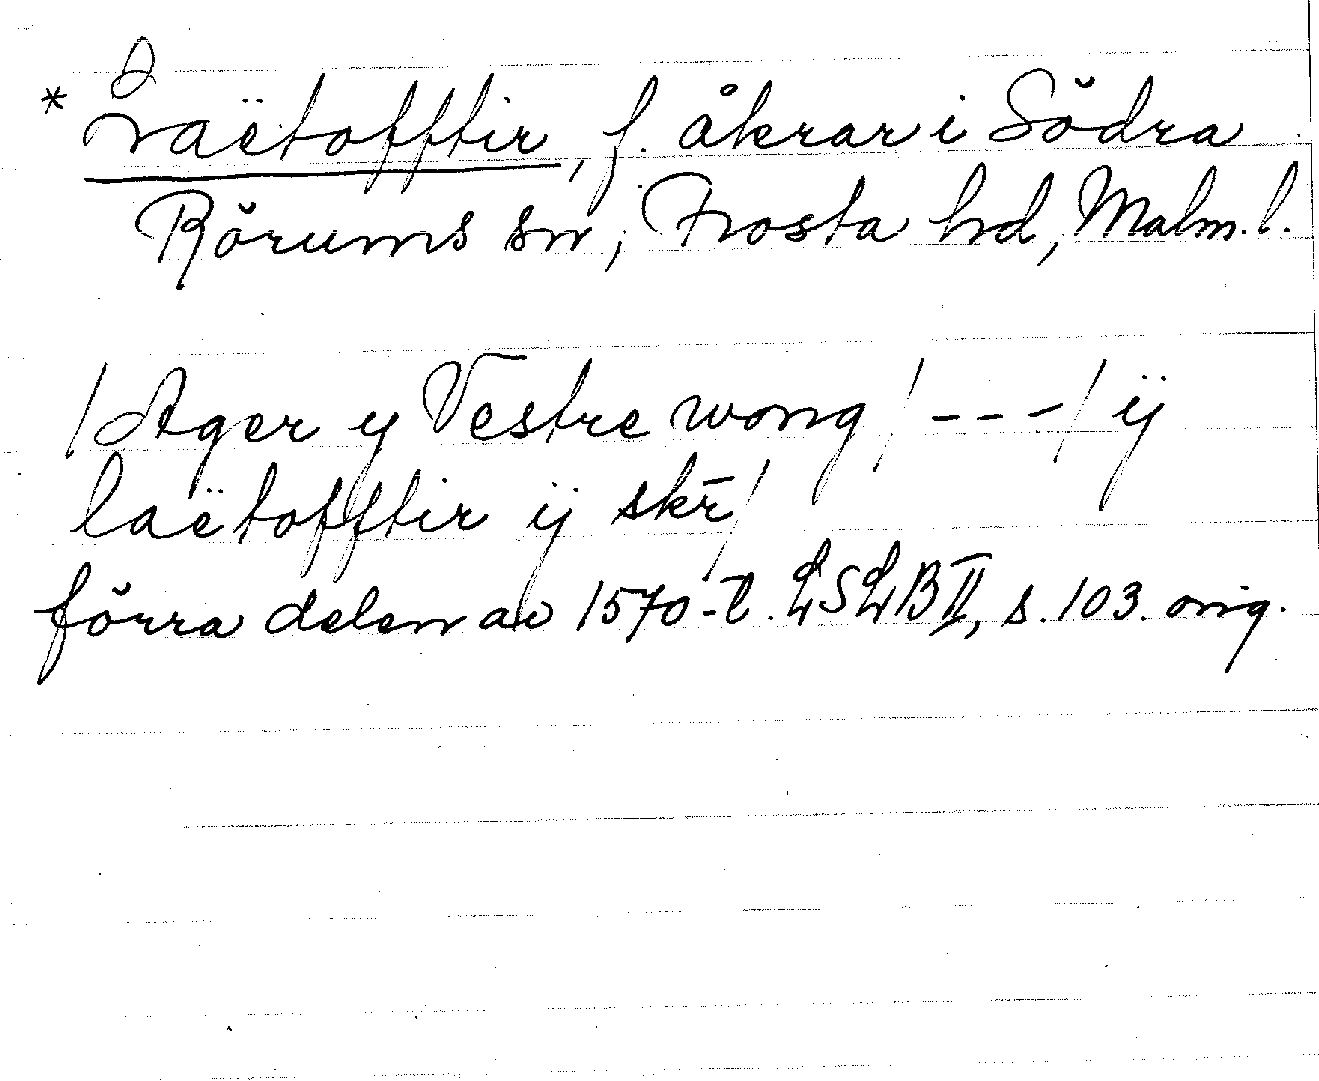 * Laëtofftir, f. åkrar i Södra
Rörums sn, Frosta hd, Malm. l.
/Ager y Vestre wong/ - - - / ij
laëtofftir ij skr̄/
förra delen av 1570-t. LSLB II, s. 103. orig.